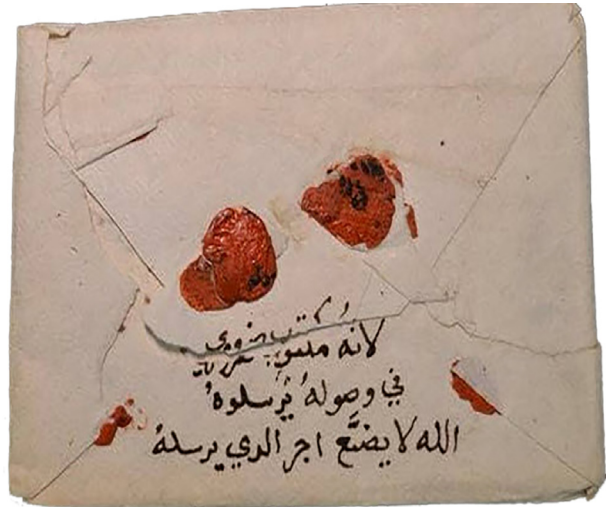 لانه مكتوب
في وصولهُ يُرسلوهُ
الله لا يضيَّع اجر الدي يرسلهُ